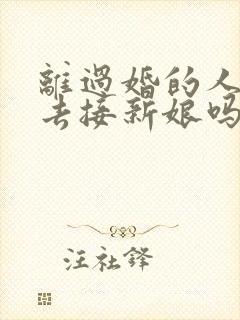 離過婚的人
去接新娘吗
汪社鋒